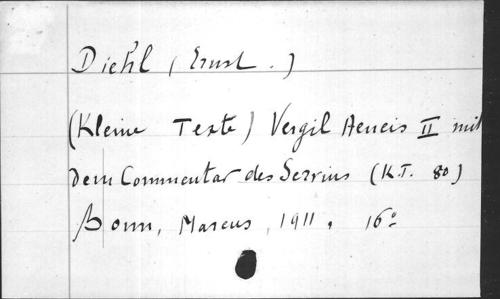 Diehl (Ernst.)
(Kleine Texte) Vergil Aeneis II mit
dem Commentar des Servius (K.T. 80)
Bonn, Marcus, 1911. 16º